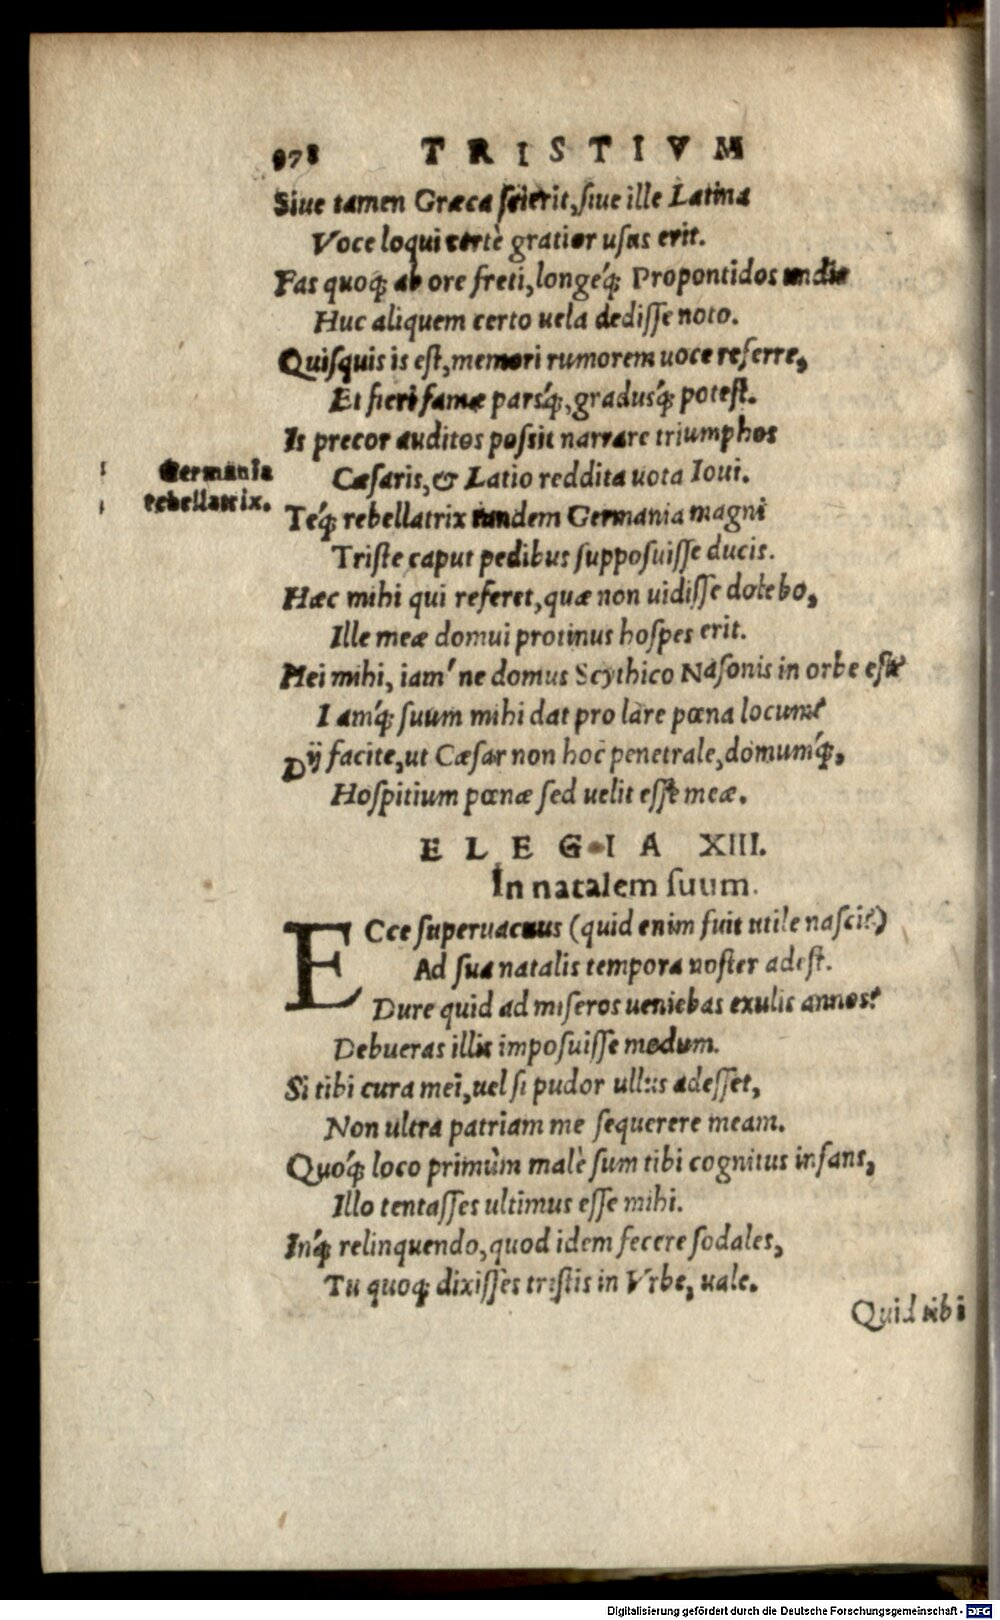 978 TRISTIVM
Siue tamen Græca scierit, siue ille Latina
Voce loqui certè gratior usus erit.
Fas quoq; ab ore freti, longeq́; Propontidos undis
Huc aliquem certo uela dedisse noto.
Quisquis is est, memori rumorem uoce referre,
Et fieri famæ parsq́;, gradusq́; potest.
Is precor auditos possit narrare triumphos
Germania
Cæsaris, & Latio reddita uota Ioui.
rebellatrix.
Téq; rebellatrix tandem Germania magni
Triste caput pedibus supposuisse ducis.
Hæc mihi qui referet, quæ non uidisse dolebo,
Ille meæ domui protinus hospes erit.
Hei mihi, iam' ne domus Scythico Nasonis in orbe est?
Iamq́; suum mihi dat pro lare pœna locum?
Dij facite, ut Cæsar non hoc penetrale, domumq́;,
Hospitium pœnæ sed uelit esse meæ.
ELEGIA XIII.
In natalem suum.
ECce superuacuus (quid enim fuit utile nasci?)
Ad sua natalis tempora noster adest.
Dure quid ad miseros ueniebas exulis annos?
Debueras illis imposuisse modum.
Si tibi cura mei, uel si pudor ullus adesset,
Non ultra patriam me sequerere meam.
Quoq́; loco primùm malè sum tibi cognitus infans,
Illo tentasses ultimus esse mihi.
Inq́; relinquendo, quod idem fecere sodales,
Tu quoq; dixisses tristis in Vrbe, uale.
Quid tibi
Digitalisierung gefördert durch die Deutsche Forschungsgemeinschaft - DFG